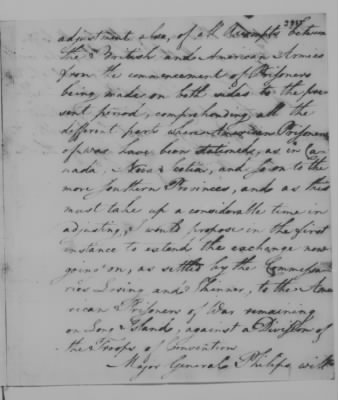 adjustment also, of all Accompts between
the British and American Armies
from the commencement of Prisoners
being made on both sides to the pre-
sent period, comprehending all the
different parts where American Prisoners
of war have been stationed, as in Ca-
nada, Nova Scotia, and so on to the
more Southern Provinces, and as this
must take up a considerable time in
adjusting, I would propose in the first
instance to extend the exchange now
going on, as settled by the Commissa-
ries Loring and Skinner, to the Ame-
rican Prisoners of War remaining
on Long Island, against a Division of
the Troops of Convention
Major General Philips, with